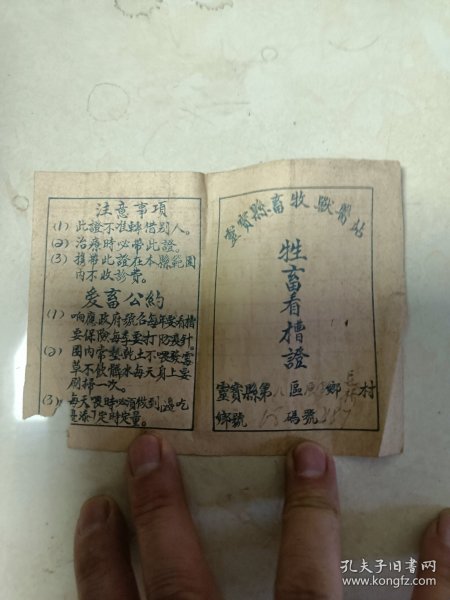 靈寶縣畜牧獸醫站
牲畜看槽證
靈寶縣第八區 鄉 村
鄉號 碼號
注意事項
(1) 此證不准轉借别人。
(2) 治療時必帶此證。
(3) 携帶此證在本縣範圍
内不收診費。
愛畜公約
(1) 响應政府號召每年要看槽
要保險每季要打防疫針。
(2) 圈内常墊乾土不喂發霉
草不飲髒水每天身上要
刷掃一次。
(3) 每天喂時必須做到邊吃
邊添定時定量。
孔夫子旧书网
www.kongfz.com